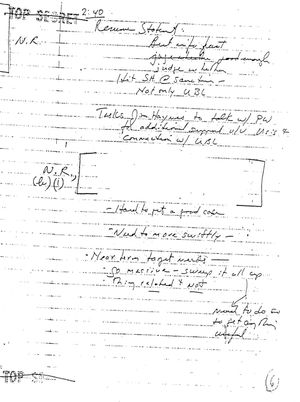 TOP SECRET
2:40
N.R.
Best info fast
judge whether
good enough
Hit S.H. @ same time -
Not only UBL
Tasks Jim Haynes to talk w/ PW
for additional support v/v Usis &
connection w/ UBL
N.R.,
(b)(1)
- Hard to get a good case
- Need to move swiftly -
- Near term target needs -
- go massive - sweep it all up
Thing related & not
need to do so
to get anything
useful
TOP SE
6